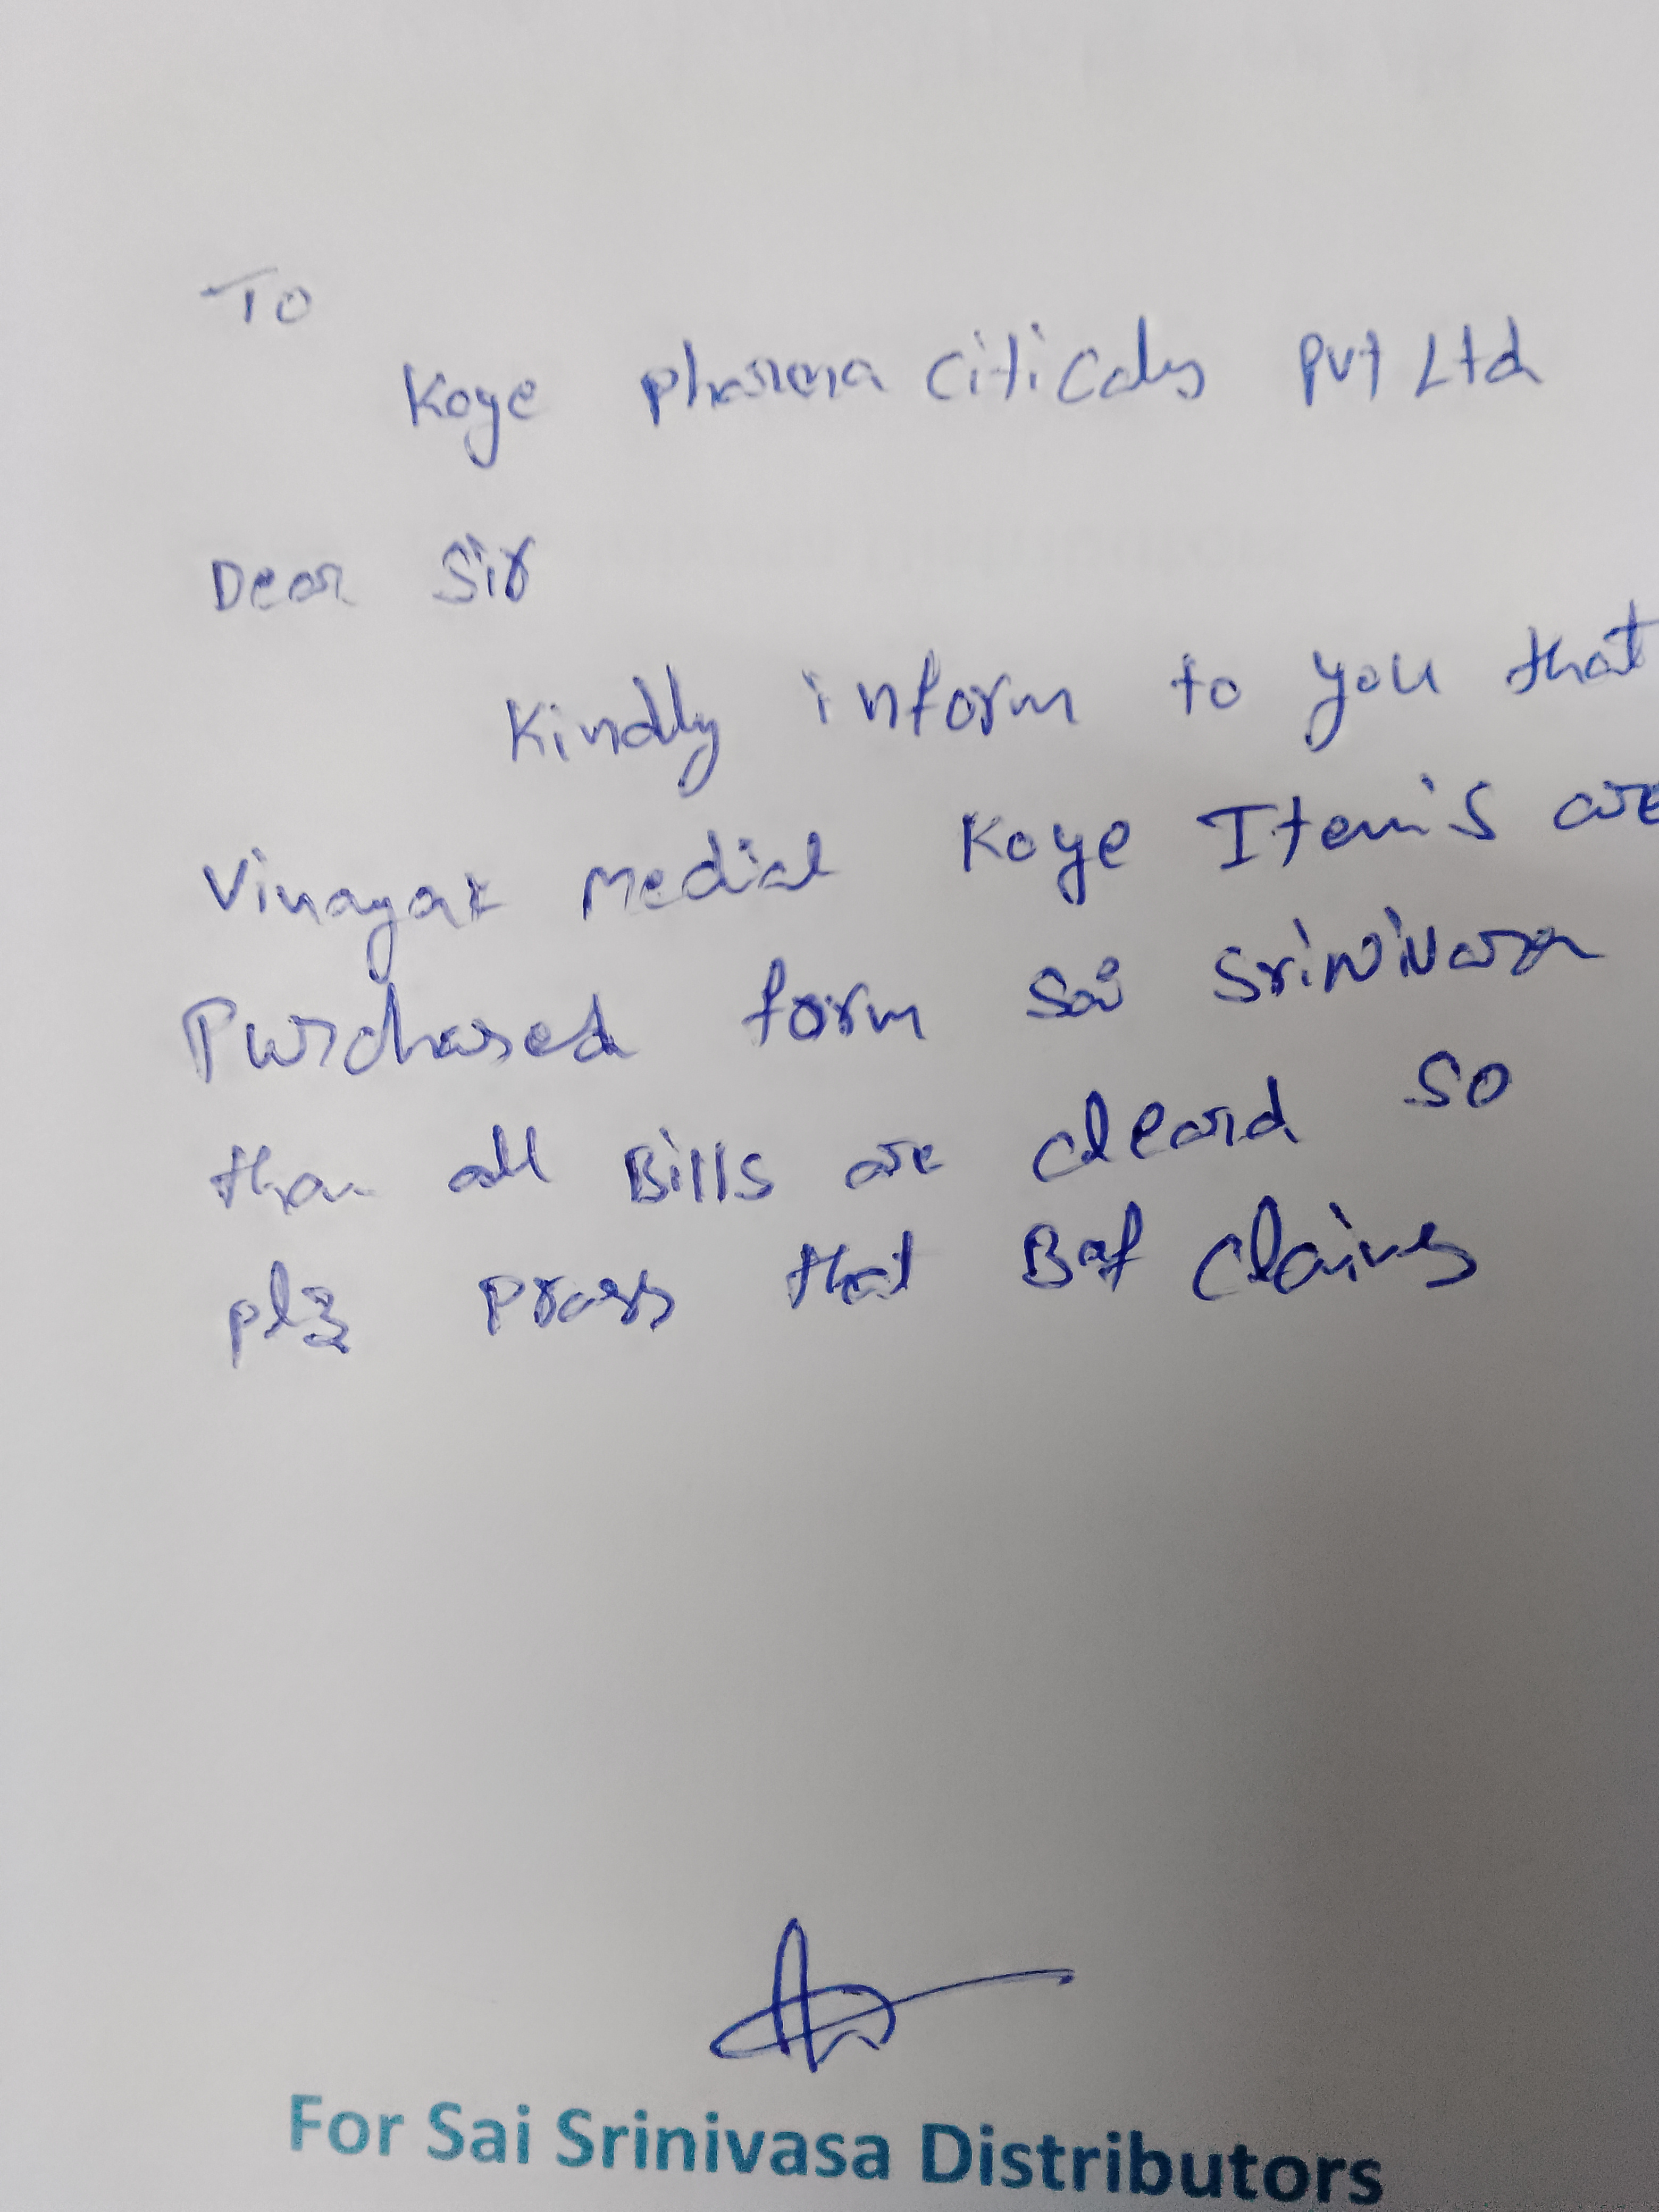 To
Koye pharma citicals Pvt Ltd
Dear Sir
Kindly inform to you that
Vinayak Medical Koye Item's are
Purchased form Sai Srinivasa
than all Bills are cleard so
plz that claims
For Sai Srinivasa Distributors